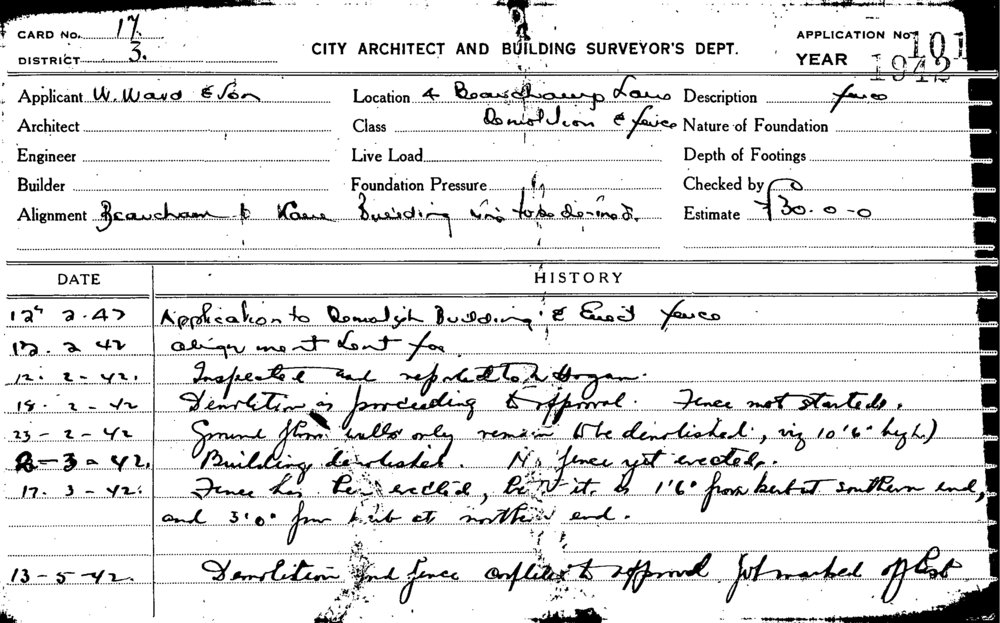 CARD No. 17
DISTRICT 3.
CITY ARCHITECT AND BUILDING SURVEYOR'S DEPT.
APPLICATION No. 101
YEAR 1942
Applicant W. Ward & Son Location 4 Beauchamp Lane Description fence
Architect Class Demolition & fence Nature of Foundation
Engineer Live Load Depth of Footings
Builder Foundation Pressure Checked by
Alignment Beaucham p Lane Building line to be de-fined. Estimate £30.0-0
DATE HISTORY
12" 2.42 Application to Demolish Building & Erect fence
12. 2 42 alignment sent for
12. 2-42. Inspected and reported to Mr Hogan.
18. 2-42 Demolition is proceeding to approval. Fence not started.
23-2-42 Ground floor walls only remain to be demolished, viz 10'6" high)
2-3-42. Building demolished. No fence yet erected.
17. 3-42. Fence has been erected, but it is 1'6" from kerb at southern end,
and 3'0" from kerb at northern end.
13-5-42. Demolition and fence completed to approval Job marked off list